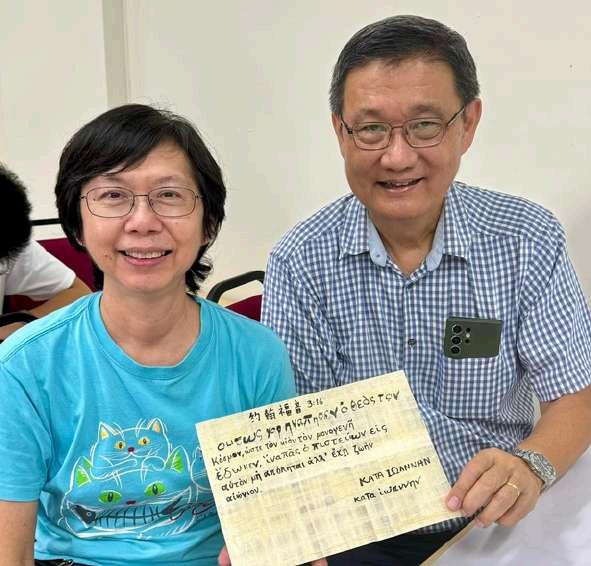 约翰福音 3:16
ουτως γαρ ἠγαπησεν ὁ θεὸς τον
κόσμον, ὥστε τὸν υἱὸν τὸν μονογενῆ
ἔδωκεν, ἵνα πᾶς ὁ πιστεύων εἰς
αὐτὸν μὴ απόληται ἀλλ' ἔχῃ ζωὴν
αἰώνιον.
ΚΑΤΑ ΙΩΑΝΝΑΝ
κατα ιωαννην